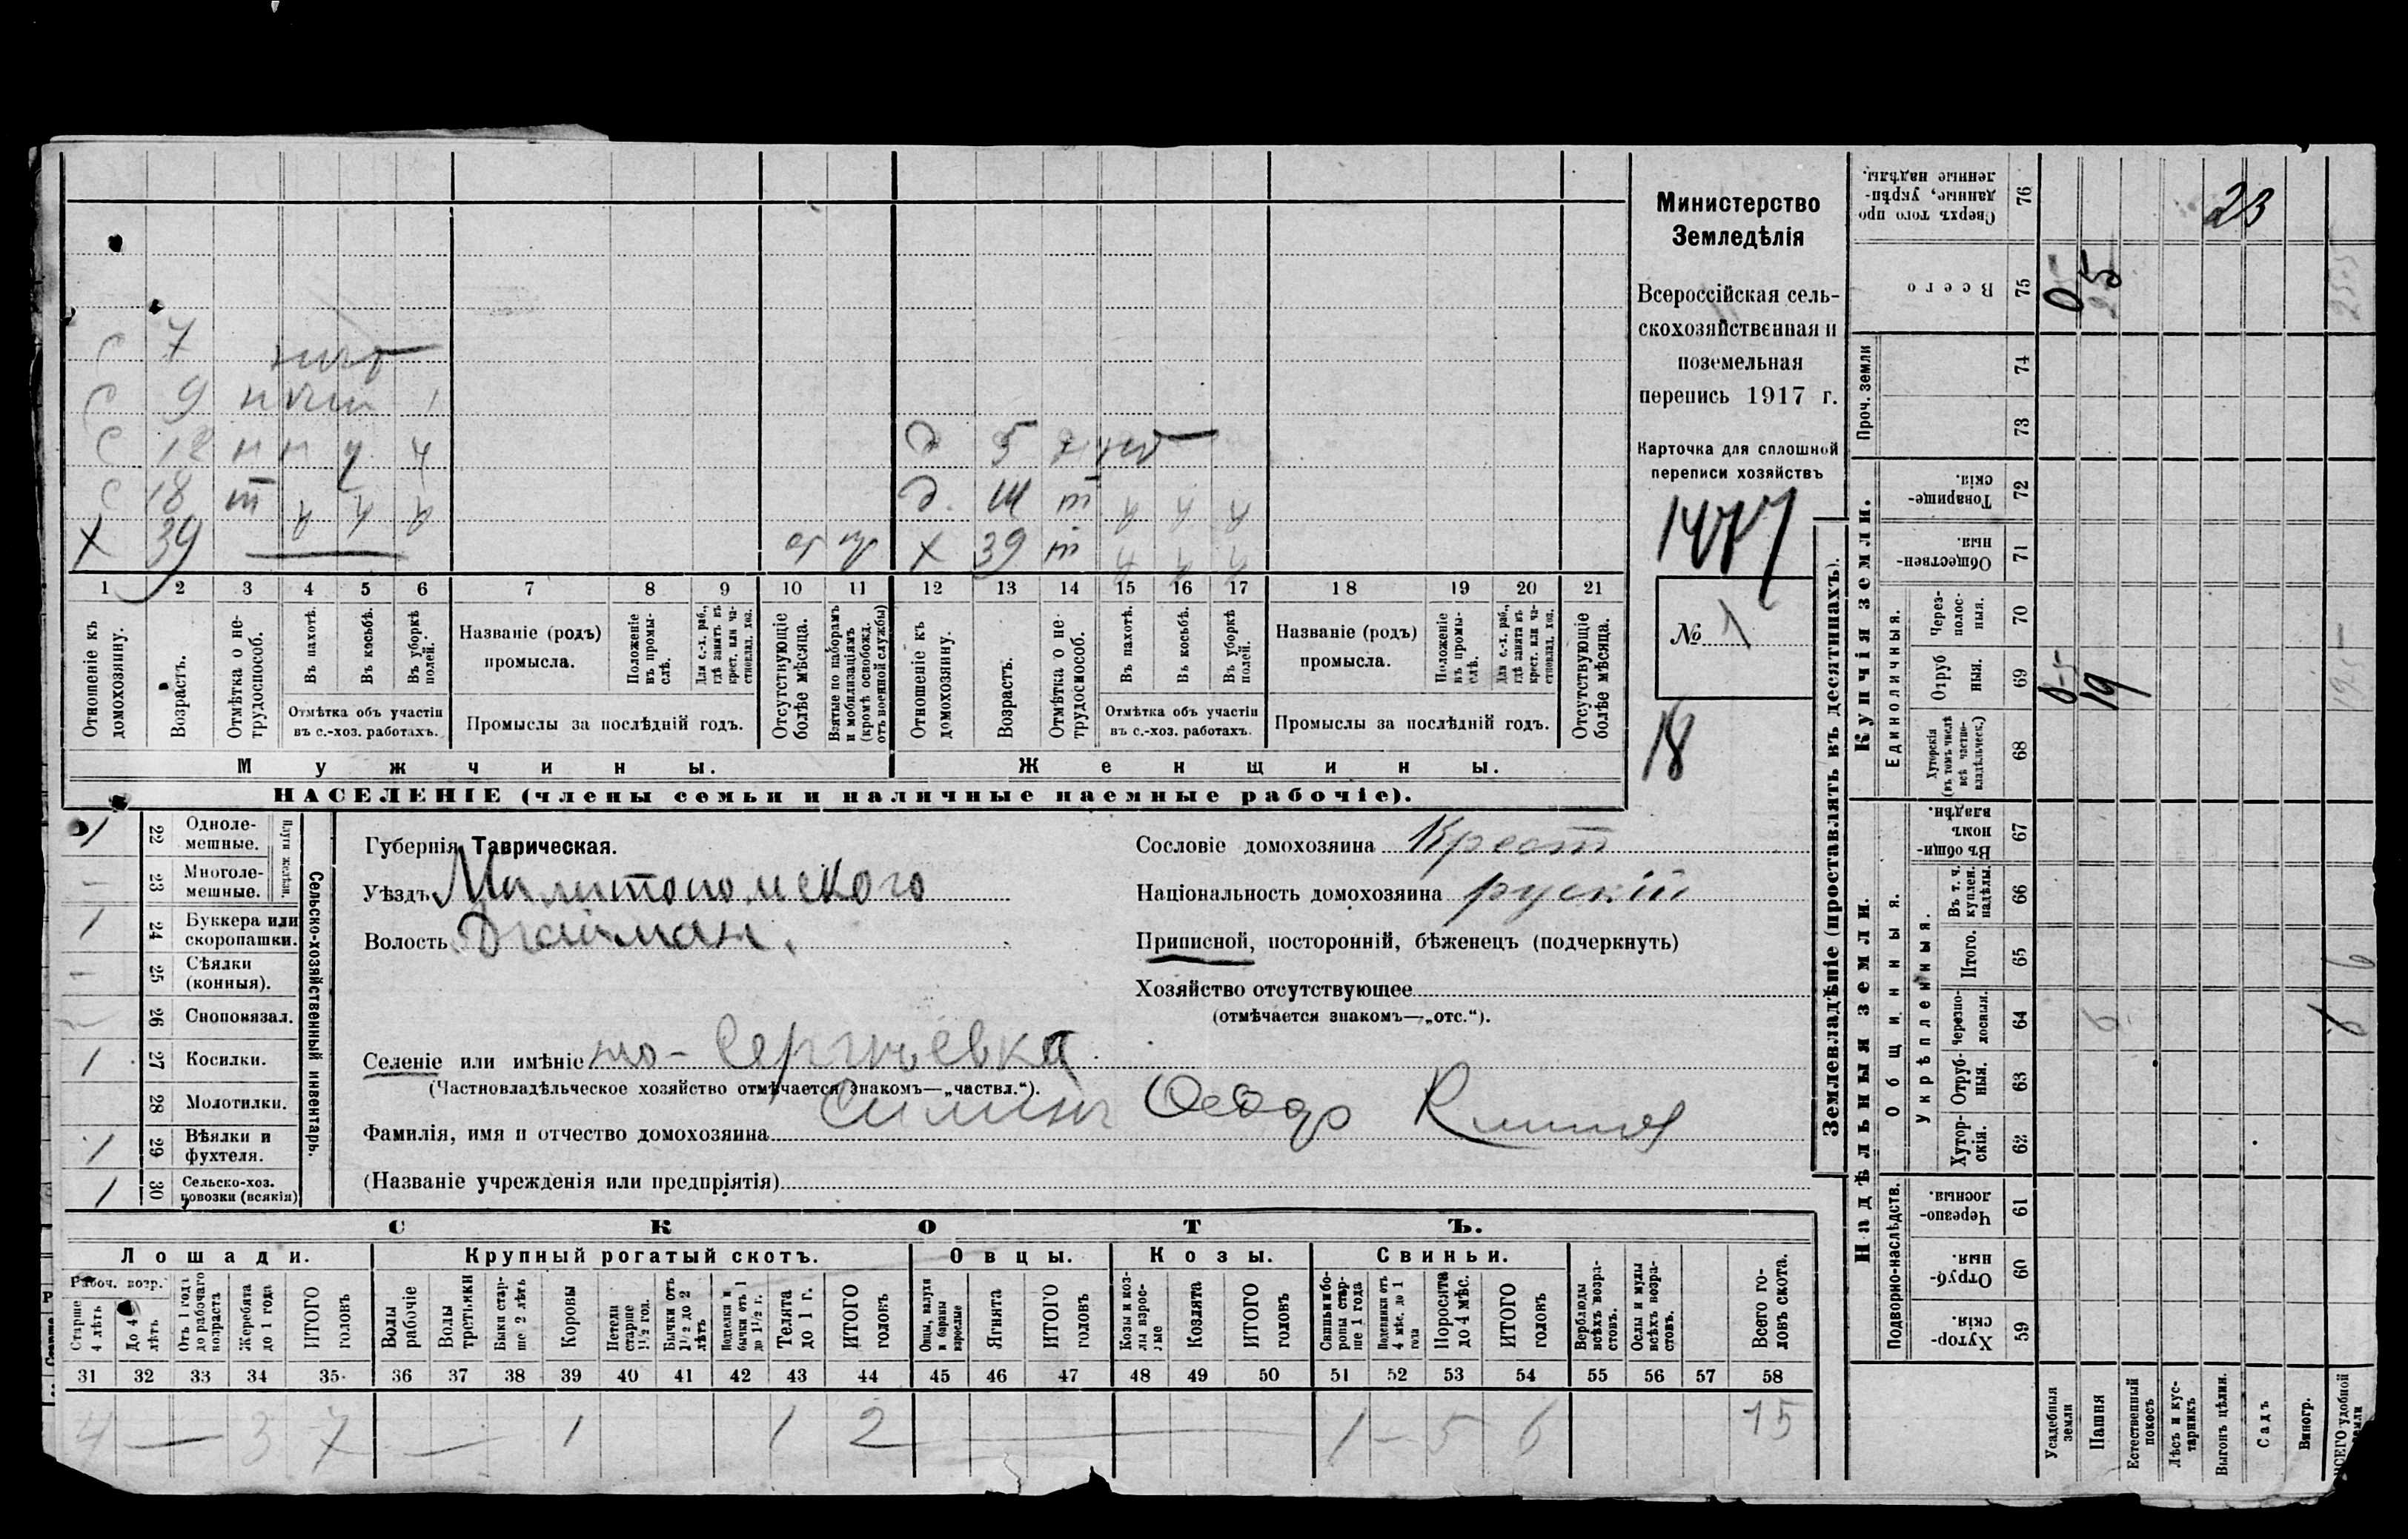 С 7
С 9
С 12 н п
С 18 т
Х 39
д 5
д. т
Х 39 т
1 2 3 4 5 6 7 8 9 10 11 12 13 14 15 16 17 18 19 20 21
Отношеніе къ домохозяину.
Возрастъ.
Отмѣтка о не-трудоспособ.
Въ пахотѣ.
Въ косьбѣ.
Въ уборкѣ полей.
Отмѣтка объ участіи въ с.-хоз. работахъ.
Названіе (родъ) промысла.
Положеніе въ промы-слѣ.
Для с.-х. раб., гдѣ занятъ въ крест. или ча-стновлад. хоз.
Промыслы за послѣдній годъ.
Отсутствующіе болѣе мѣсяца.
Взятые по наборамъ и мобилизаціямъ (кромѣ освобожд. отъ военной службы)
Отношеніе къ домохозяину.
Возрастъ.
Отмѣтка о не-трудоспособ.
Въ пахотѣ.
Въ косьбѣ.
Въ уборкѣ полей.
Отмѣтка объ участіи въ с.-хоз. работахъ.
Названіе (родъ) промысла.
Положеніе въ промы-слѣ.
Для с.-х. раб., гдѣ занята въ крест. или ча-стновлад. хоз.
Промыслы за послѣдній годъ.
Отсутствующіе болѣе мѣсяца.
Мужчины.
Женщины.
НАСЕЛЕНІЕ (члены семьи и наличные наемные рабочіе).
Министерство
Земледѣлія
Всероссійская сель-
скохозяйственная и
поземельная
перепись 1917 г.
Карточка для сплошной
переписи хозяйствъ
1477
№ 1
18
Сельско-хозяйственный инвентарь.
Плуги желѣзн.
1 22 Одноле-мешные.
— 23 Многоле-мешные.
1 24 Буккера или скоропашки.
— 25 Сѣялки (конныя).
26 Сноповязал.
1 27 Косилки.
28 Молотилки.
1 29 Вѣялки и фухтеля.
1 30 Сельско-хоз. повозки (всякія)
Губернія Таврическая.
Уѣздъ Милитопомского
Волость
Селеніе или имѣніе Сергиевка
(Частновладѣльческое хозяйство отмѣчается знакомъ—„частвл.“).
Фамилія, имя и отчество домохозяина Федор
(Названіе учрежденія или предпріятія)
Сословіе домохозяина Крест
Національность домохозяина рускій
Приписной, посторонній, бѣженецъ (подчеркнуть)
Хозяйство отсутствующее
(отмѣчается знакомъ—„отс.“).
СКОТЪ.
Лошади.
Крупный рогатый скотъ.
Овцы.
Козы.
Свиньи.
Рабоч. возр.
Старше 4 лѣтъ
До 4 лѣтъ
Отъ 1 года до рабочаго возраста
Жеребята до 1 года
ИТОГО головъ
Волы рабочіе
Волы третьяки
Быки стар-ше 2 лѣтъ
Коровы
Нетели старше 1½ год.
Бычки отъ 1½ до 2 лѣтъ
Подтелки и бычки отъ 1 до 1½ г.
Телята до 1 г.
ИТОГО головъ
Овцы, валухи и бараны взрослые
Ягнята
ИТОГО головъ
Козы и коз-лы взрос-лые
Козлята
ИТОГО головъ
Свиньи и бо-ровы стар-ше 1 года
Подсвинки отъ 4 мѣс. до 1 года
Поросята до 4 мѣс.
ИТОГО головъ
Верблюды всѣхъ возра-стовъ.
Ослы и мулы всѣхъ возра-стовъ.
Всего го-ловъ скота.
31 32 33 34 35 36 37 38 39 40 41 42 43 44 45 46 47 48 49 50 51 52 53 54 55 56 57 58
4 — 3 7 — 1 1 2 — 1 — 5 6 15
Землевладѣніе (проставлять въ десятинахъ).
Надѣльныя земли.
Купчія земли.
Проч. земли
Подворно-наслѣдств.
Общинныя.
Укрѣпленныя.
Единоличныя.
Сверхъ того про-данные, укрѣп-ленные надѣлы. 76
Всего 75
74
73
Товарище-скія. 72
Обществен-ныя. 71
Через-полос-ныя. 70
Отруб-ныя. 69
Хуторскія (въ томъ числѣ всѣ частно-владѣльческ.) 68
Въ общин-номъ владѣн. 67
Въ т. ч. куплен. надѣлы. 66
Итого. 65
Черезпо-лосныя. 64
Отруб-ныя. 63
Хутор-скія. 62
Черезпо-лосныя. 61
Отруб-ныя. 60
Хутор-скія. 59
23
05 25 25-5
0-5 19 19-5
6 6 6
Усадебныя земли
Пашня
Естественный покосъ
Лѣсъ и кус-тарникъ
Выгонъ цѣлин.
Садъ
Виногр.
ВСЕГО удобной земли